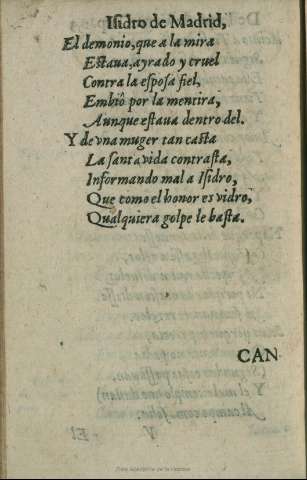 Isidro de Madrid,
El demonio, que a la mira
Estaua, ayrado y cruel
Contra la esposa fiel,
Embiò por la mentira,
Aunque estaua dentro del.
Y de vna muger tan casta
La santa vida contrasta,
Informando mal a Isidro,
Que como el honor es vidro,
Qualquiera golpe le basta.
CAN